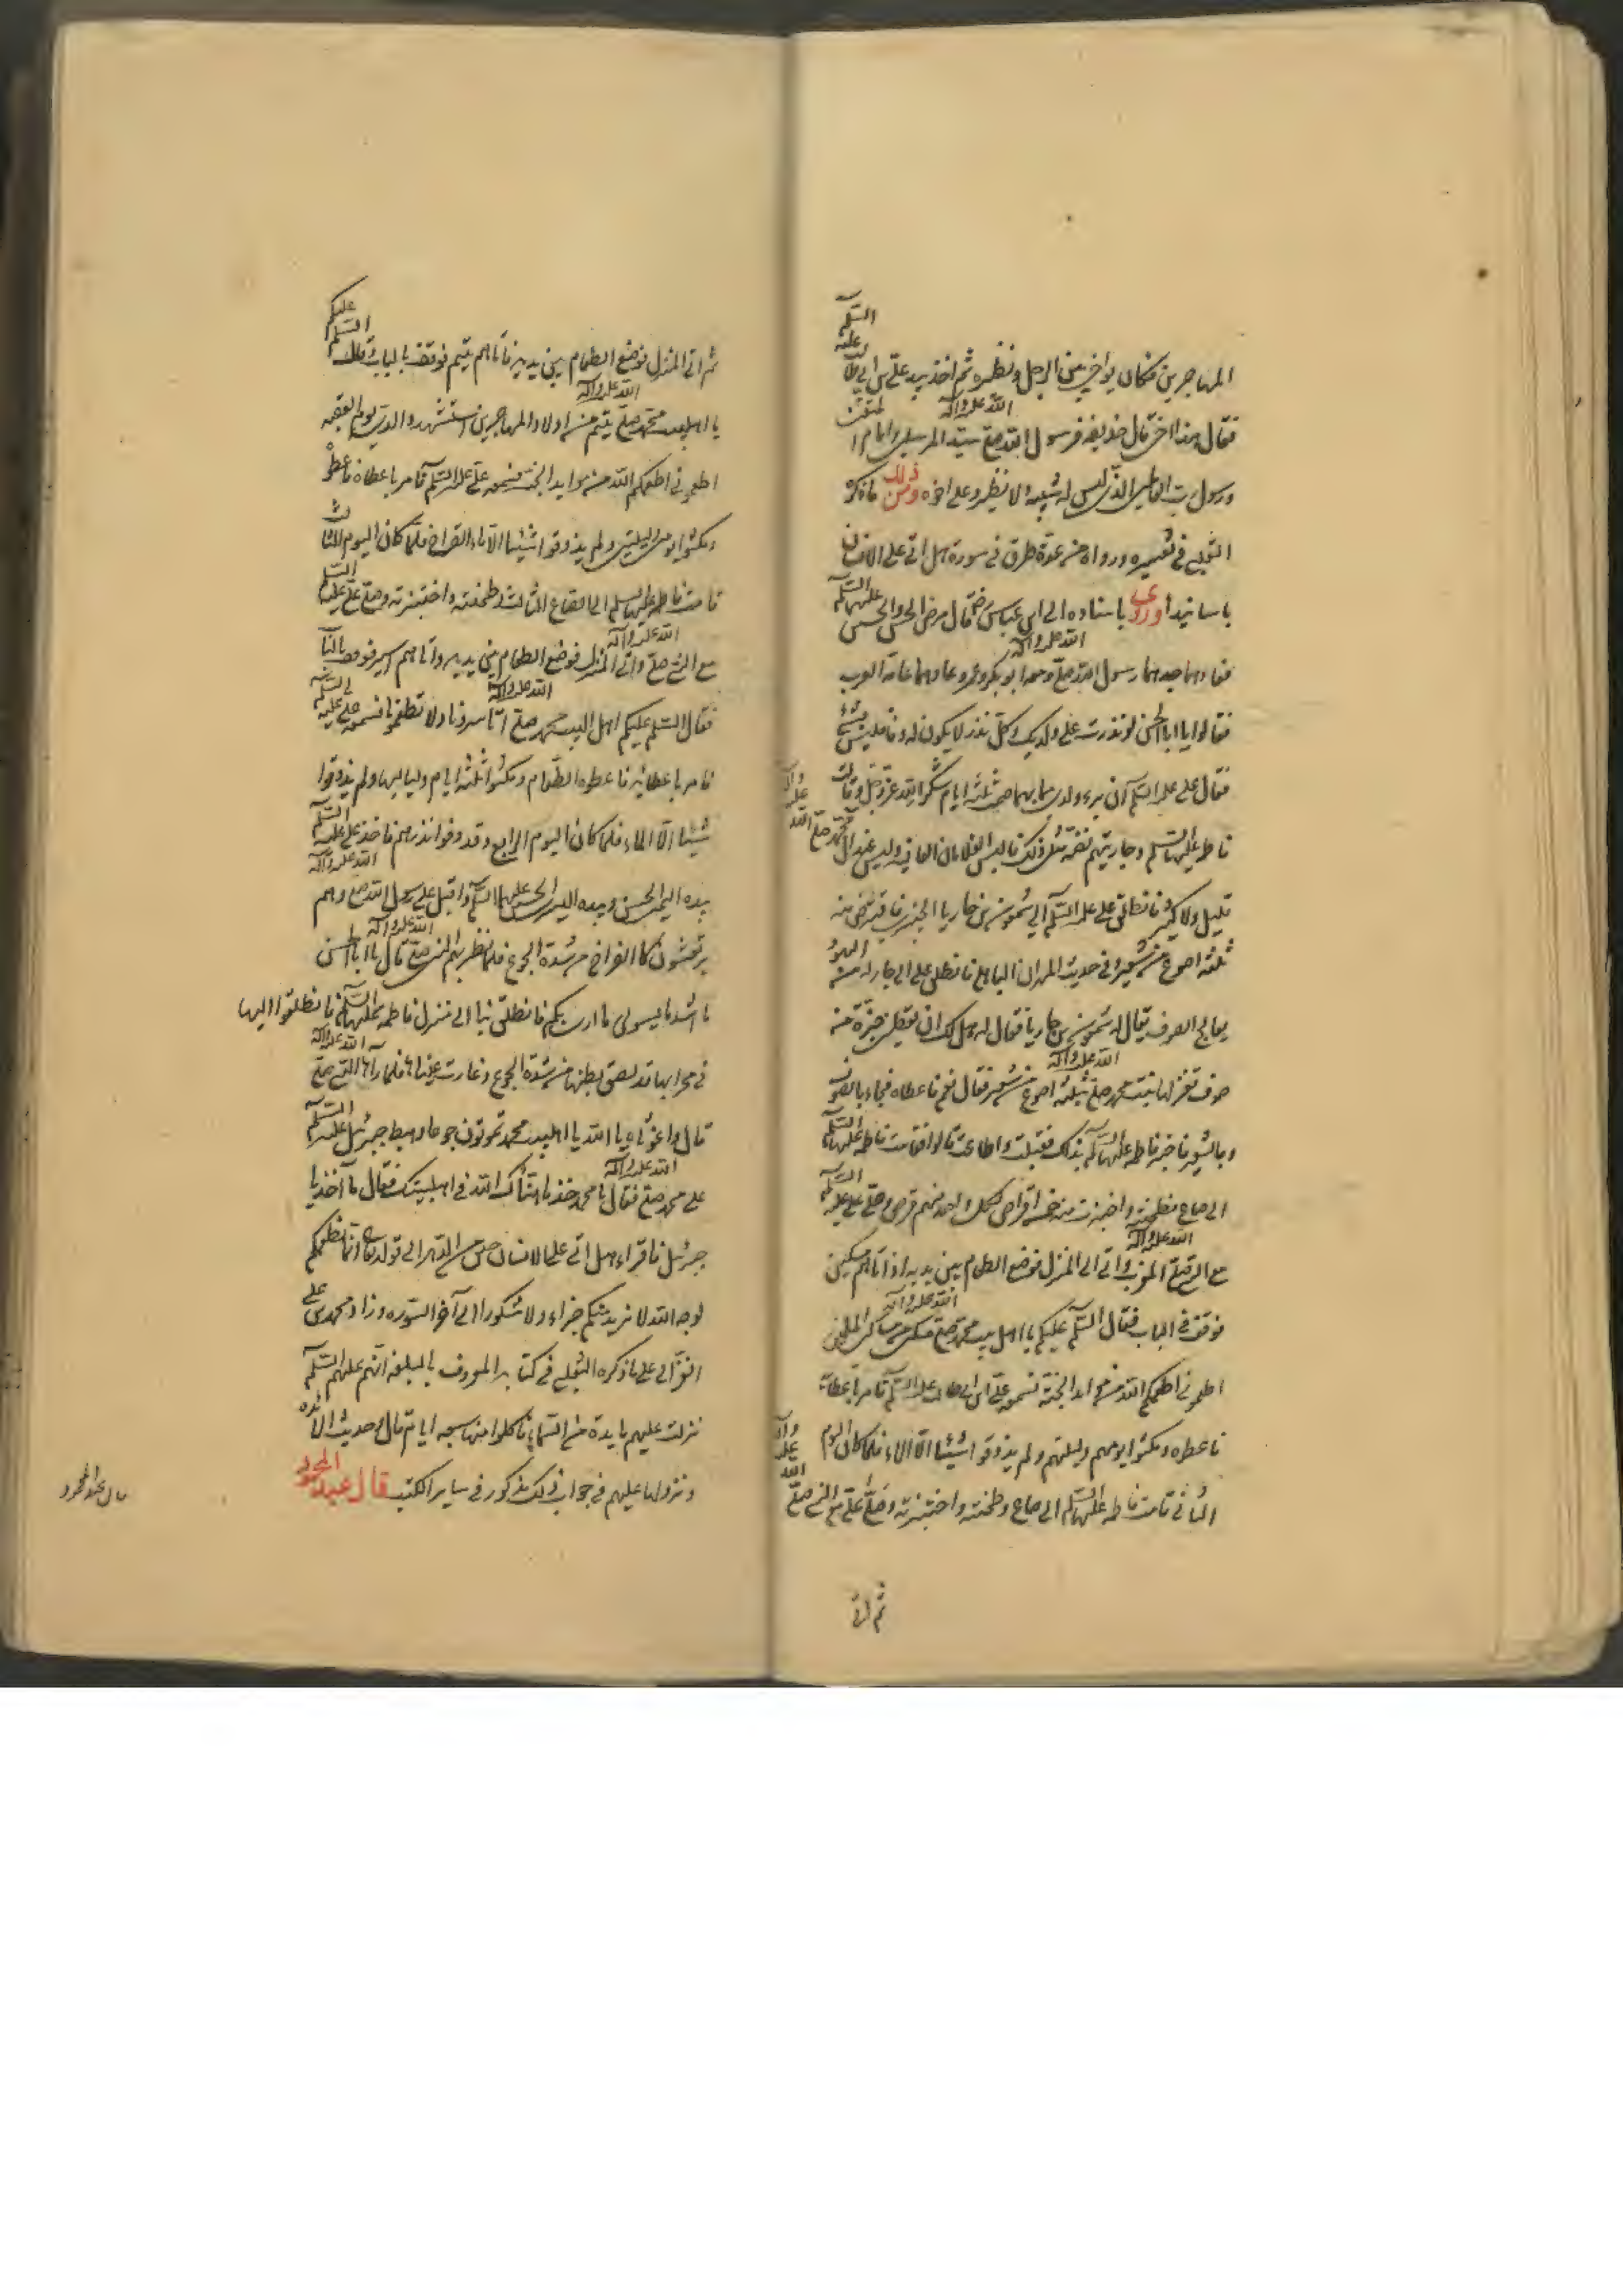 المهاجرين فكان يواخي بين الرجل ونظيره ثم اخذ بيد علي بن ابي طالب عليه السلم
فقال هذا اخي قال حذيفة فرسول الله صلى الله عليه وآله سيد المرسلين وامام المتقين
ورسول رب العالمين الذي ليس له شبيه ولا نظير وعلى اخوه ومن ذلك ما ذكره
الثعلبي في تفسيره ورواه من عدة طرق في سورة هل اتى على الانسان
باسانيده وروى باسناده الى ابن عباس رض قال مرض الحسن والحسين عليهما السلم
فعادهما جدهما رسول الله صلى الله عليه وآله ومعه ابو بكر وعمر وعادهما عامة العرب
فقالوا يا ابا الحسن لو نذرت على ولديك وكل نذر لا يكون له وفا فليس بشئ
فقال علي عليه السلم ان برء ولدي مما بهما صمت ثلثة ايام شكرا لله عز وجل وقالت
فاطمة عليها السلم وجاريتهم فضة مثل ذلك فالبس الغلامان العافية وليس عند آل محمد صلى الله عليه وآله
قليل ولا كثير فانطلق علي عليه السلم الى شمعون بن حاريا الخيبري فاقترض منه
ثلثة اصوع من شعير وفي حديث المهران الباهلي فانطلق علي الى جار له من اليهود
يعالج الصوف يقال له شمعون بن حاريا فقال له هل لك ان تعطيني جزة من
صوف تغزلها بنت محمد صلى الله عليه وآله بثلثة اصوع من شعير فقال نعم فاعطاه فجاء بالصوف
وبالشعير فاخبر فاطمة عليها السلم بذلك فقبلت واطاعت قالوا فقامت فاطمة عليها السلم
الى صاع فطحنته واختبزت منه خمسة اقراص لكل واحد منهم قرص وصلى علي عليه السلم
مع النبي صلى الله عليه وآله المغرب واتى الى المنزل فوضع الطعام بين يديه اذ اتاهم مسكين
فوقف في الباب فقال السلم عليكم يا اهل بيت محمد صلى الله عليه وآله مسكين من مساكين المسلمين
اطعموني اطعمكم الله من موائد الجنة فسمعه علي ابن ابي طالب عليه السلم فامر باعطائه
فاعطوه ومكثوا يومهم وليلتهم ولم يذوقوا شيئا الا الماء فلما كان اليوم
الثاني قامت فاطمة عليها السلم الى صاع وطحنته واختبزته وصلى علي مع النبي صلى الله عليه وآله
ثم اتى
ثم اتى المنزل فوضع الطعام بين يديه فاتاهم يتيم فوقف بالباب وقال السلم عليكم
يا اهلبيت محمد صلى الله عليه وآله يتيم من اولاد المهاجرين استشهد والدي يوم العقبه
اطعموني اطعمكم الله من موايد الجنة فسمعه علي عليه السلم فامر باعطاه فاعطوه
ومكثوا يومين وليلتين ولم يذوقوا شيئا الا الماء القراح فلما كان اليوم الثالث
قامت فاطمة عليها السلم الى الصاع الثالث وطحنته واختبزته وصلى علي عليه السلم
مع النبي صلى الله عليه وآله واتى المنزل فوضع الطعام بين يديه واتاهم اسير فوقف بالباب
فقال السلم عليكم اهل البيت محمد صلى الله عليه وآله تاسرونا ولا تطعمونا فسمعه علي عليه السلم
فامر باعطائه فاعطوه الطعام ومكثوا ثلثة ايام ولياليها ولم يذوقوا
شيئا الا الماء فلما كان اليوم الرابع وقد وفوا نذرهم فاخذ علي عليه السلم
بيده اليمنى الحسن وبيده اليسرى الحسين عليهما السلم واقبل على رسول الله صلى الله عليه وآله وهم
يرتعشون كالفراخ من شدة الجوع فلما نظر بهم النبي صلى الله عليه وآله قال يا ابا الحسن
ما اشد ما يسوئني ما ارى بكم فانطلق بنا الى منزل فاطمة عليها السلم فانطلقوا اليها
في محرابها قد لصق بطنها من شدة الجوع وغارت عيناها فلما رآها النبي صلى الله عليه وآله
قال واغوثاه يا الله يا اهلبيت محمد تموتون جوعا وهبط جبرئيل عليه السلم
على محمد صلى الله عليه وآله فقال يا محمد خذ ما هناك الله في اهلبيتك فقال ما آخذ يا
جبرئيل فاقراء هل اتى على الانسان حين من الدهر الى قوله تعالى انما نطعمكم
لوجه الله لا نريد منكم جزاء ولا شكورا الى آخر السوره وزاد محمد بن علي
الغزالي على ما ذكره الثعلبي في كتابه المعروف بالبلغة انهم عليهم السلم
نزلت عليهم مايدة من السماء فاكلوا منها سبعة ايام قال وحديث المائده
ونزولها عليهم في جواب ذلك مذكور في ساير الكتب قال عبد المحمود
قال عبد المحمود